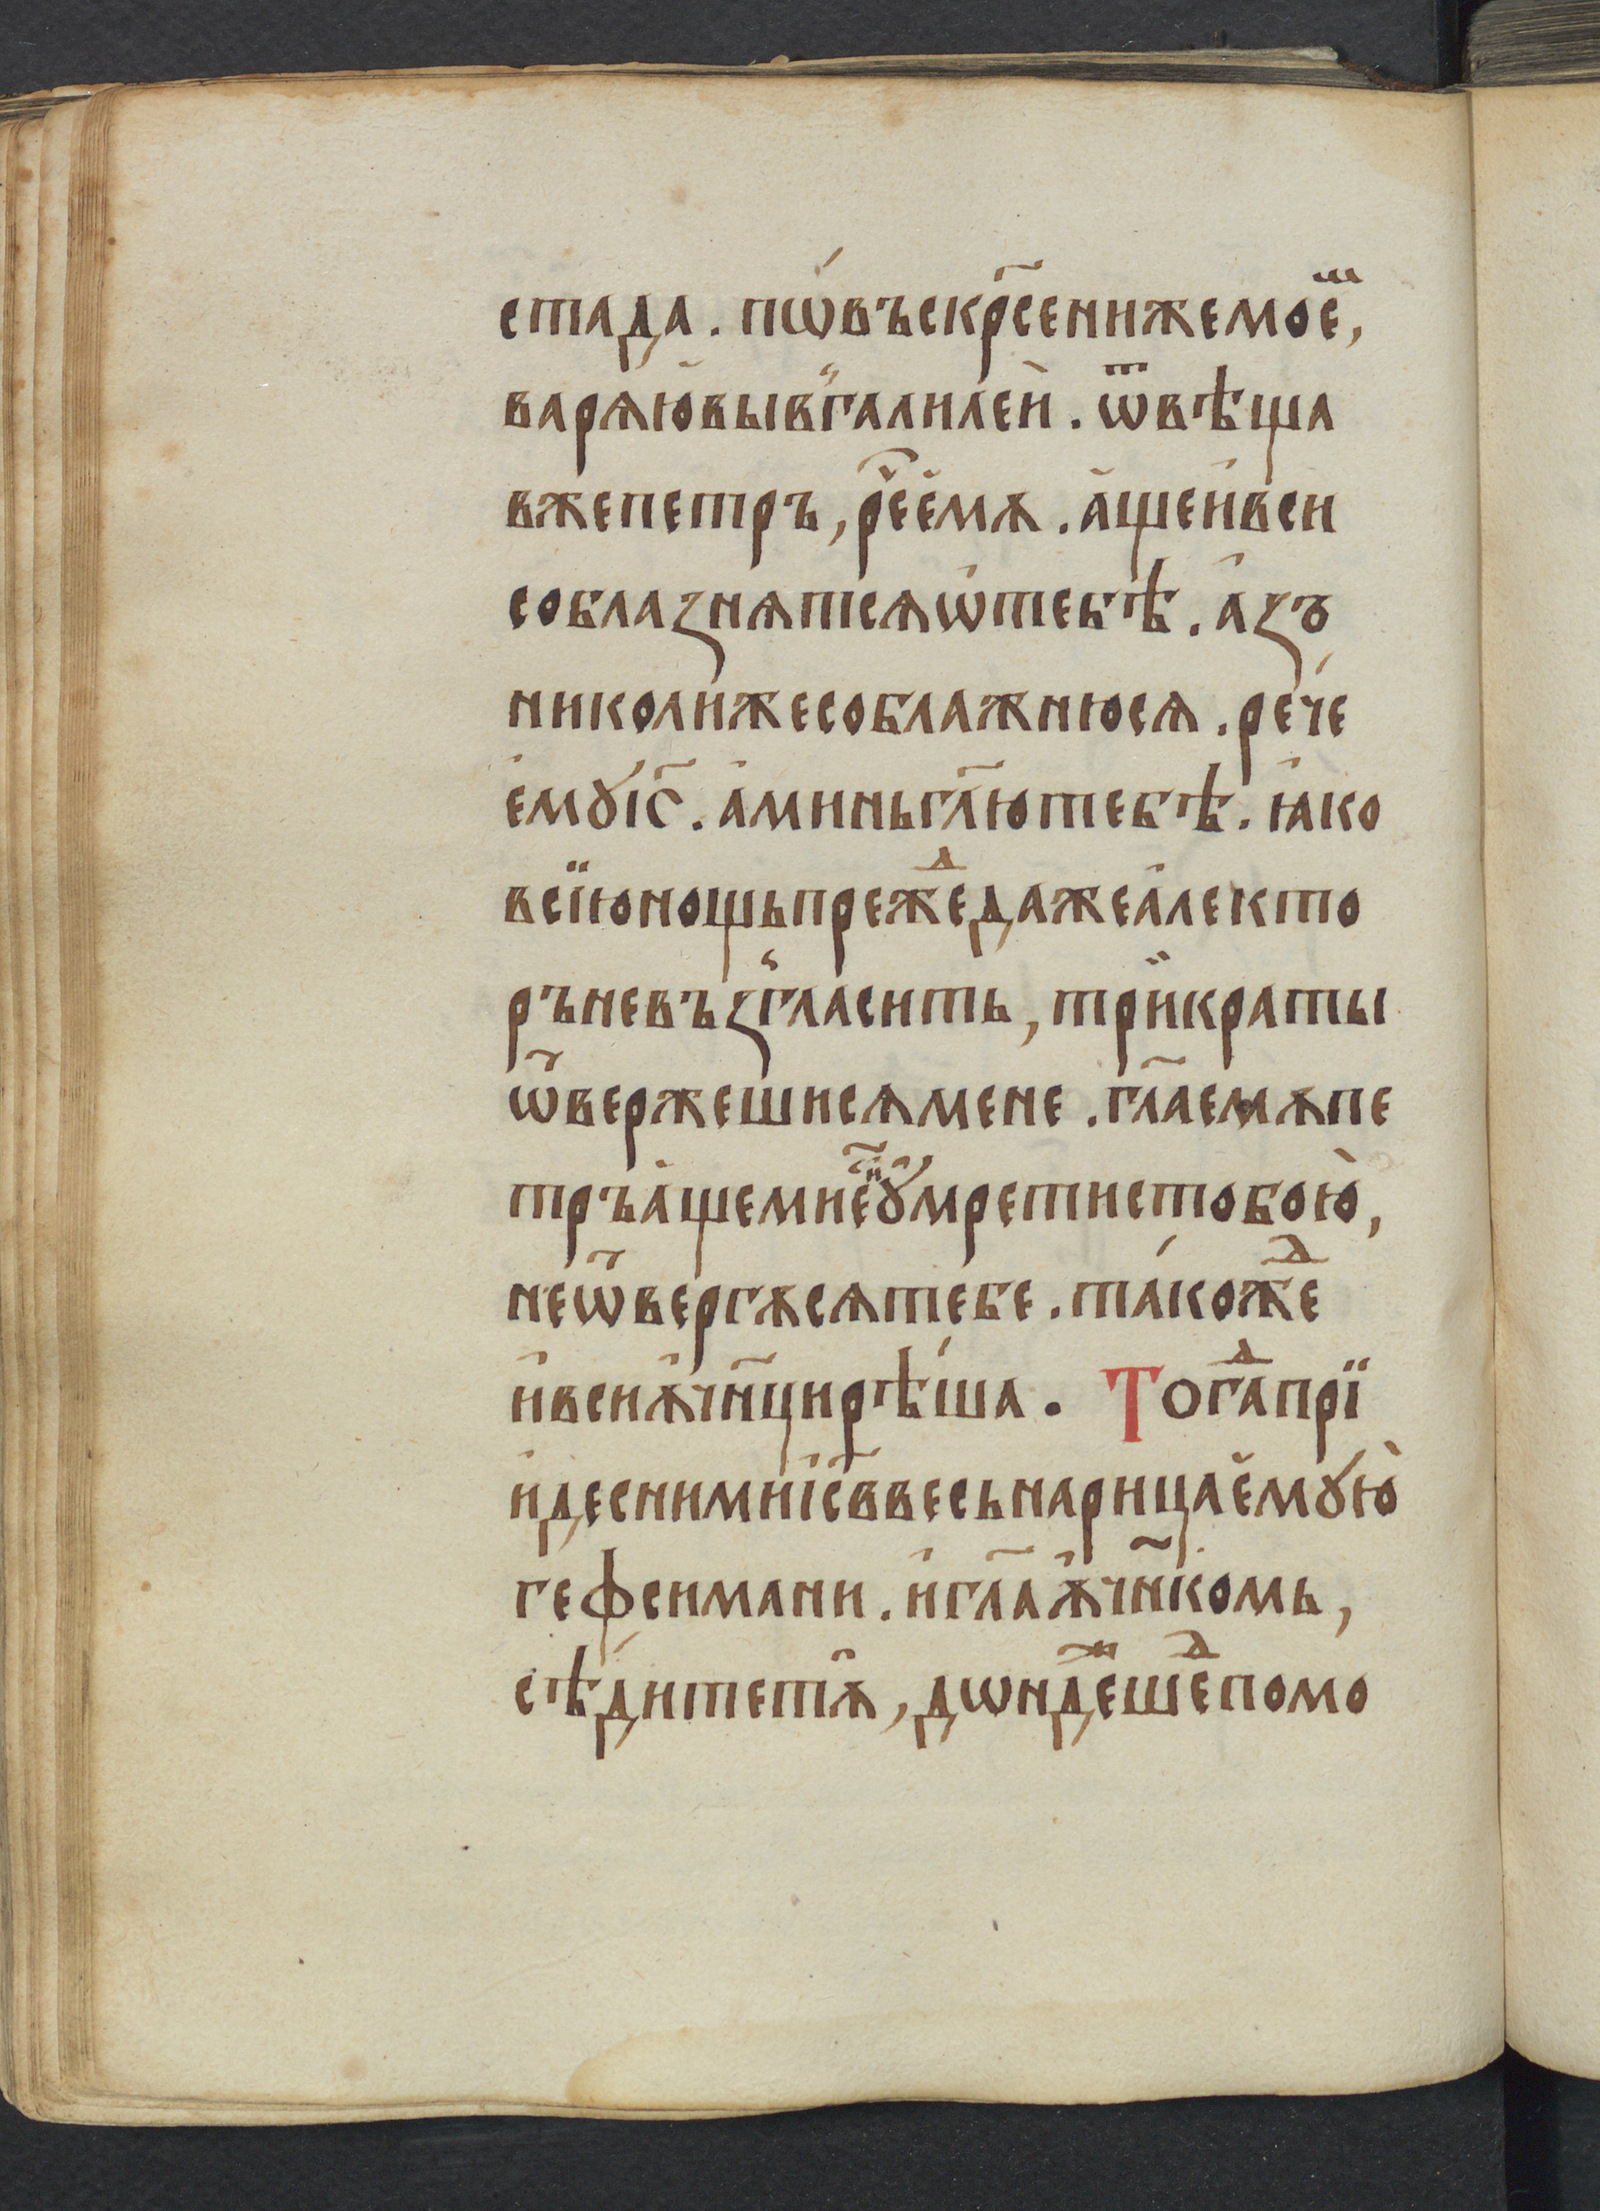 стада . пѡ́въскр҃сенижемоеⷨ҇,
варѧ́ювыв̾галиле́и . ѿвѣща
вжепетръ , рⷱ҇еемѫ . а҆щеи҆вси
соблазнѧтсѧѡ҆тебѣ . а҆зъ
николижесоблажнюсѧ . рече́
е҆мꙋі҃с . а҆миньгл҃ютебѣ . ꙗ҆ко
всїюнощьпрежⷣедажеа҆лекто
ръневъз̾гласить , три̏краты
ѿ҃вержешисѧмене . гл҃аемѫпе
тръа҆щемиеⷭ҇ꙋ҆мретистобою̀ ,
неѿ҃вергѫсѧтебе . та́кожⷣе
и҆всиѫ҆чн҃цирѣ́ша . Тогⷣапрї
и҆деснимиі҃сввесьнарицаемꙋю̀
гефсимани . и҆гл҃аѫ҆чн҃комь ,
сѣ́дитетꙋ̑ , дѡндⷤешеⷣпомо